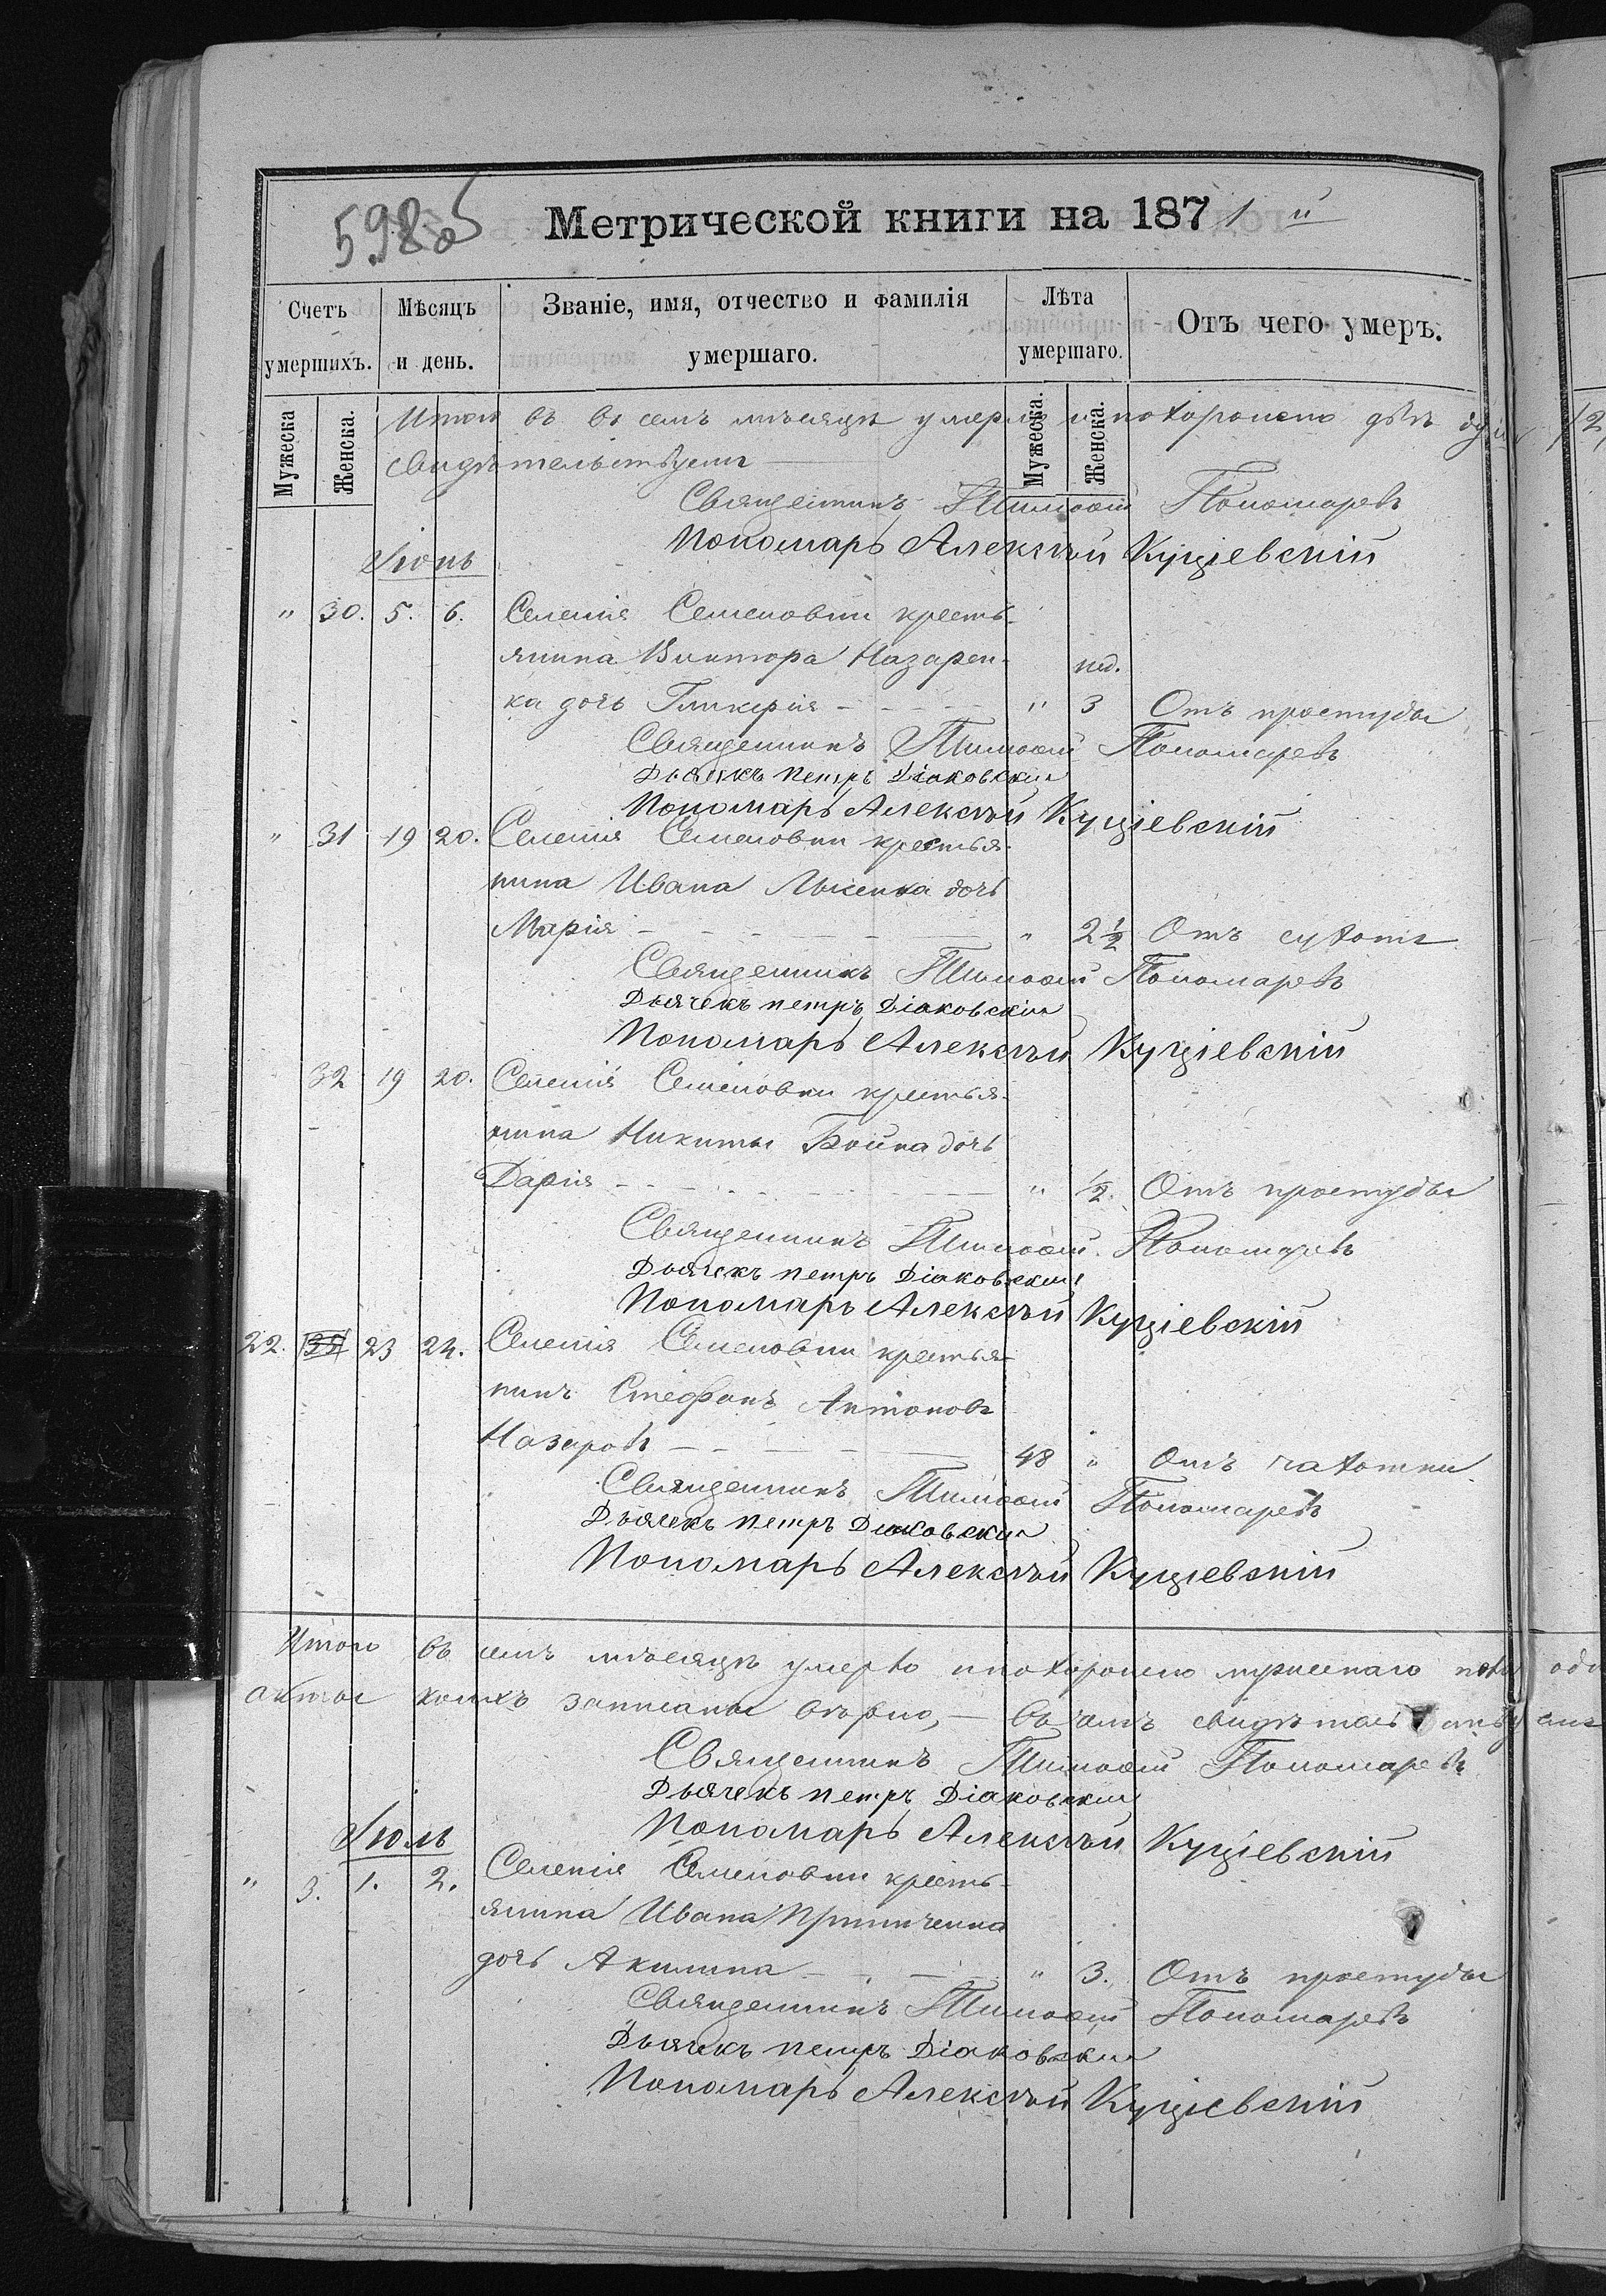 598об
Метрической книги на 1871й
Счетъ умершихъ. Мѣсяцъ и день. Званіе, имя, отчество и фамилія умершаго. Лѣта умершаго. Отъ чего умеръ.
Мужеска Женска. Мужеска. Женска.
Итого въ семъ мѣсяцѣ умерло и похоронено
свидѣтельствуемъ
Священникъ Тимоѳей Пономаревъ
Пономарь Алексѣй Кущіевскій
Іюнь
" 30. 5. 6. Селенія Семеновки кресть-
янина Виктора Назарен- нед.
ка дочь Гликерія " 3 Отъ простуды
Священникъ Тимоѳей Пономаревъ
Дьячекъ Петръ Діаковскій
Пономарь Алексѣй Кущіевскій
" 31 19 20. Селенія Семеновки крестья-
нина Ивана Лысенка дочь
Марія " 2½ Отъ сухоты
Священникъ Тимоѳей Пономаревъ
Дьячекъ Петръ Діаковскій
Пономарь Алексѣй Кущіевскій
32 19 20. Селенія Семеновки крестья-
нина Никиты Бойка дочь
Дарія " ½. Отъ простуды
Священникъ Тимоѳей Пономаревъ
Дьячекъ Петръ Діаковскій
Пономарь Алексѣй Кущіевскій
22. 23 24. Селенія Семеновки крестья-
нинъ Стефанъ Антоновъ
Назаровъ 48 " Отъ чахотки
Священникъ Тимоѳей Пономаревъ
Дьячекъ Петръ Діаковскій
Пономарь Алексѣй Кущіевскій
Итого въ семъ мѣсяцѣ умерло и похоронено мужескаго пола
акты коихъ записаны вѣрно, въ чемъ свидѣтельствуемъ
Священникъ Тимоѳей Пономаревъ
Дьячекъ Петръ Діаковскій
Пономарь Алексѣй Кущіевскій
Іюль
" 3. 1. 2. Селенія Семеновки кресть-
янина Ивана
дочь Акилина " 3. Отъ простуды
Священникъ Тимоѳей Пономаревъ
Дьячекъ Петръ Діаковскій
Пономарь Алексѣй Кущіевскій